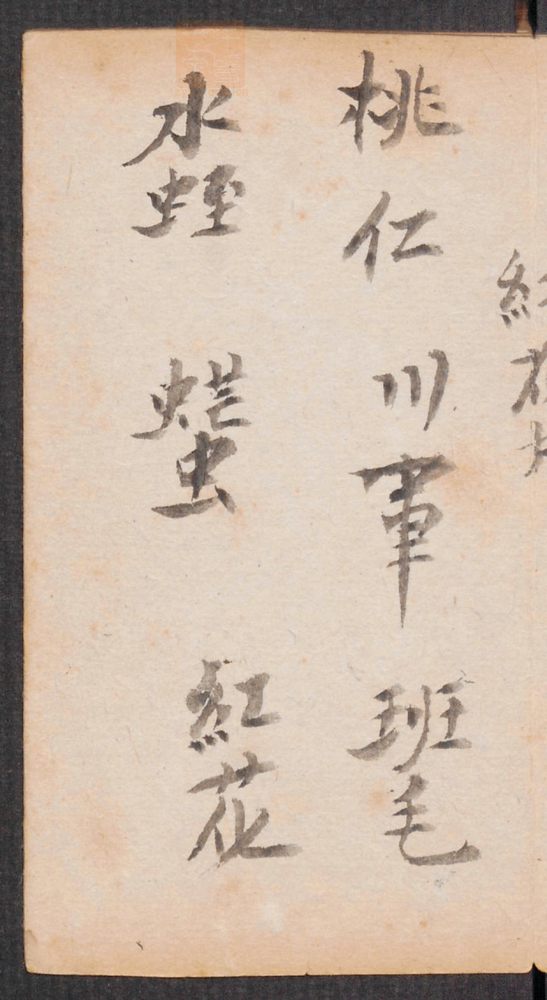 紅花
桃仁 川軍 班毛
水蛭 蝱虫 紅花